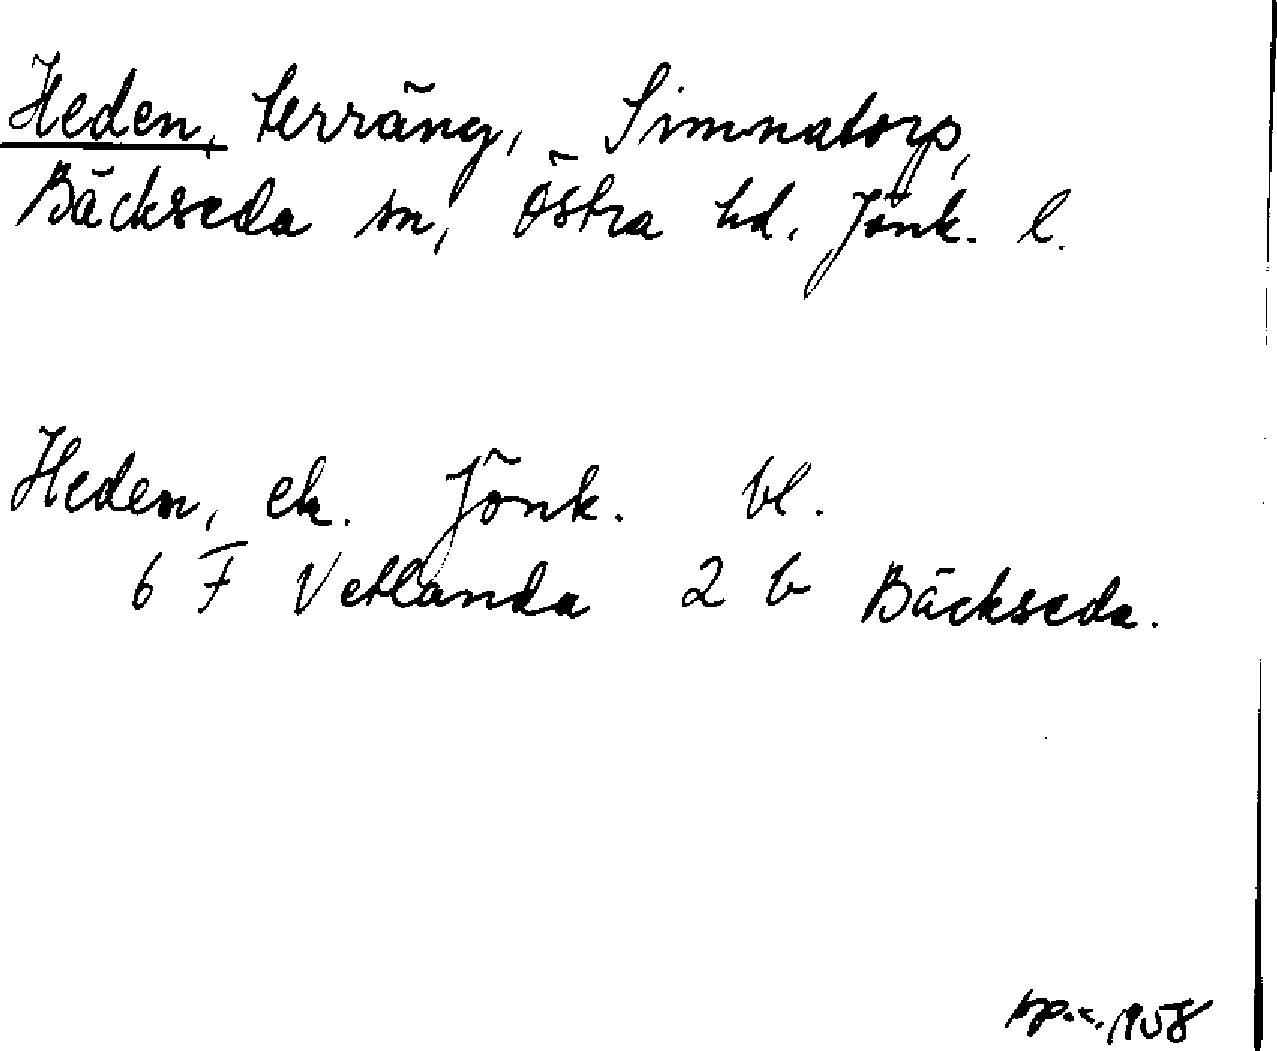 Heden, terräng, Simnatorp,
Bäckseda sn, Östra hd. Jönk. l.
Heden, ek. Jönk. bl.
6 F Vetlanda 2 b Bäckseda.
1958